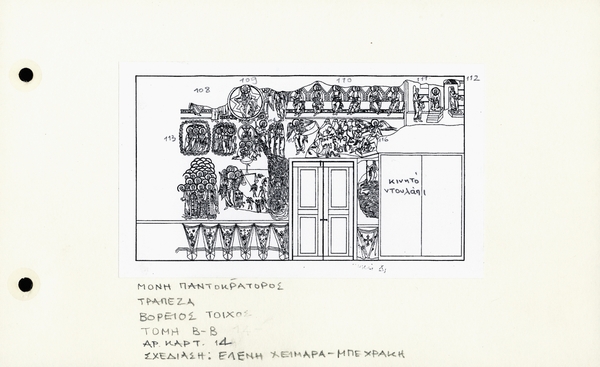 108 109 110 111 112
113
116
κινητό
ντουλάπι
ΜΟΝΗ ΠΑΝΤΟΚΡΑΤΟΡΟΣ
ΤΡΑΠΕΖΑ
ΒΟΡΕΙΟΣ ΤΟΙΧΟΣ
ΤΟΜΗ Β-Β
ΑΡ. ΚΑΡΤ. 14
ΣΧΕΔΙΑΣΗ: ΕΛΕΝΗ ΧΕΙΜΑΡΑ-ΜΠΕΧΡΑΚΗ